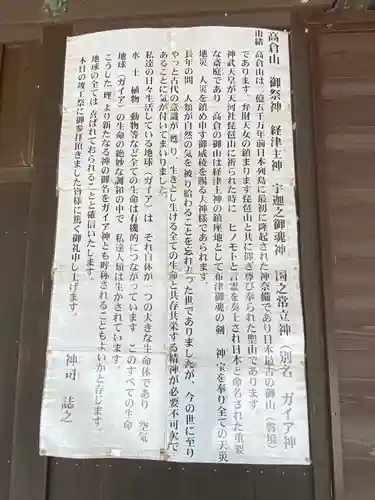 高倉山 御祭神 経津主神 宇迦之御魂神 国之常立神(別名 ガイア神
由緒 高倉山は一億五千万年前日本列島に最初に隆起された神奈備であり日本最古の御山(磐境)
であります 弁財天女の鎮まります琵琶山と共に仰ぎ尊び奉られた聖山であります。
神武天皇が天河社琵琶山に祈られた時に ヒノモトと言霊を奏上され日本と命名された重要
な斎庭であり 高倉の御山は経津主神の鎮座地として布津御魂の剣 神宝を奉り全ての天災
地災 人災を鎮め申す御威稜を賜る大神様であられます。
長年の間 人類が自然の気を被り給わることを忘れ去った世でありましたが、今の世に至り
やっと古代の意識が甦り、生きとし生ける全ての生命と共存共栄する精神が必要不可欠で
あることに気が付いてまいりました。
私達の日々生活している地球(ガイア)は それ自体が一つの大きな生命体であり 空気
水 土 植物 動物等など全ての生命は有機的につながっています このすべての生命
地球(ガイア)の生命の絶妙な調和の中で 私達人類は生かされています。
こうした理より新たなる神の御名をガイア神とも呼称されることもよいかと存じます。
地球の全ては喜ばれておられることと確信いたします。
本日の竣工祭に御参拝頂きました皆様に篤く御礼申し上げます。
神司 誌之